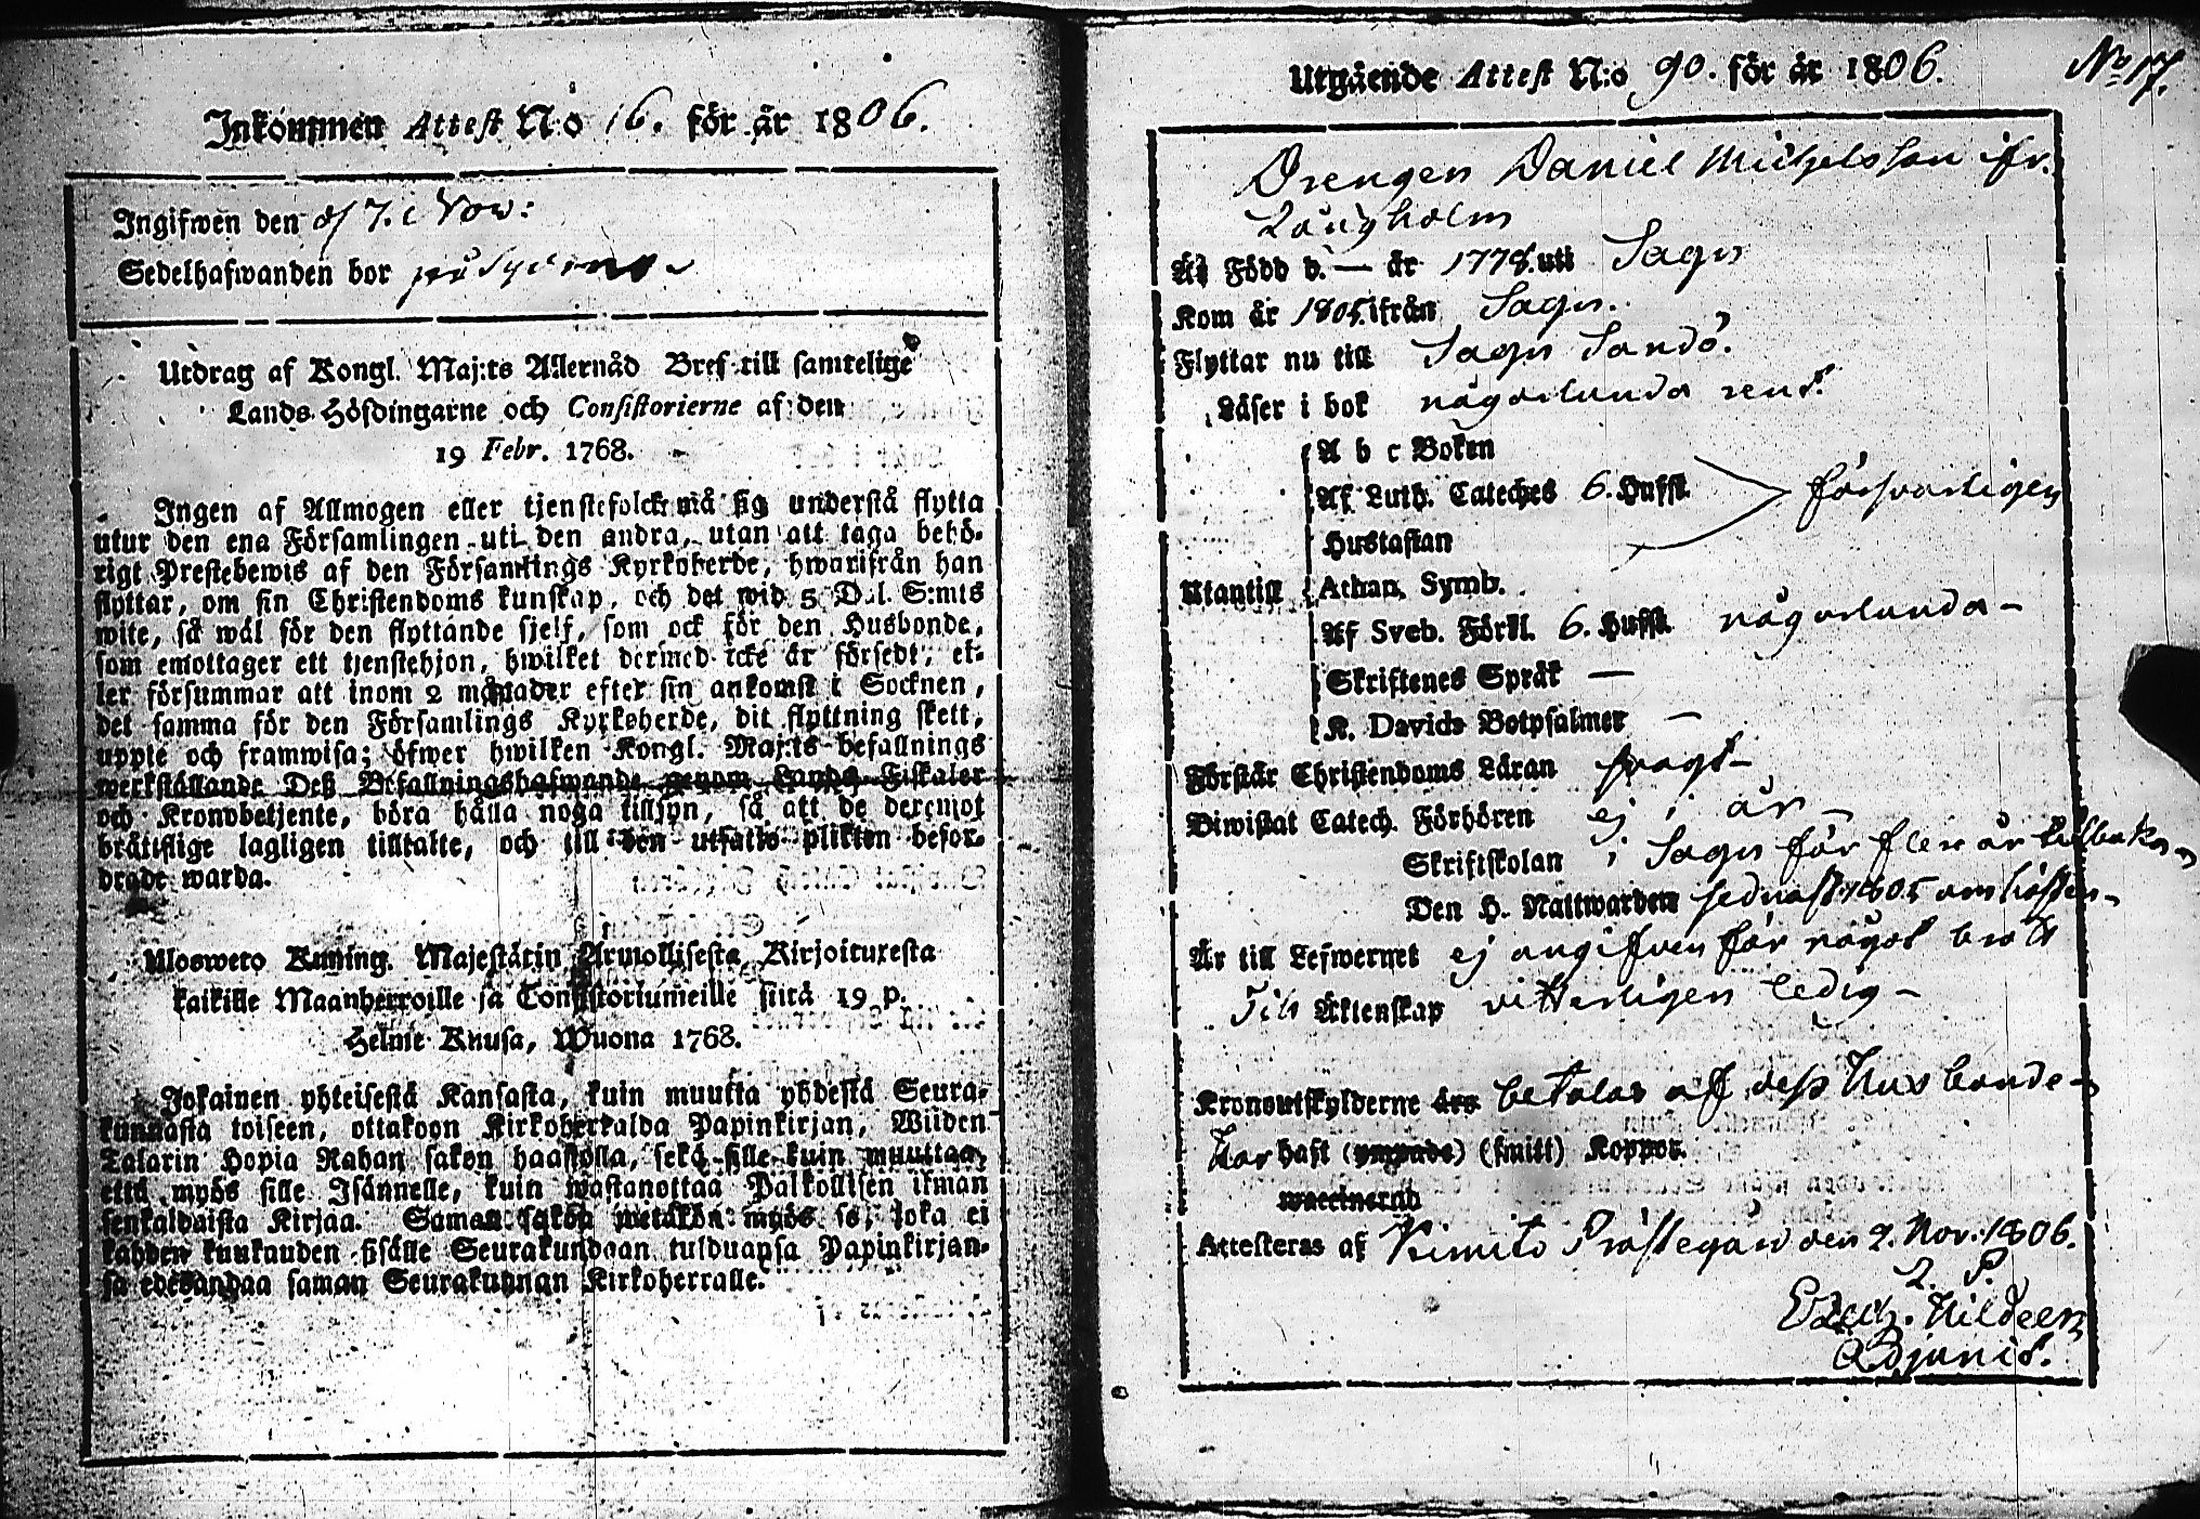 Inkommen Attest N:o 16. för år 1806.
Ingifwen den d/7. Nov:
Sedelhafwanden bor på
Utdrag af Kongl. Maj:ts Allernåd Bref till samtelige
Lands Höfdingarne och Consistorierne af den
19 Febr. 1768.
Ingen af Allmogen eller tjenstefolck må sig understå flytta
utur den ena Församlingen uti den andra, utan att taga behö-
rigt Prestebewis af den Församlings Kyrkoherde, hwarifrån han
flyttar, om sin Christendoms kunskap, och det wid 5 Dal. S:mts
wite, så wäl för den flyttande sjelf, som ock för den Husbonde,
som emottager ett tjenstehjon, hwilket dermed icke är försedt, el-
ler försummar att inom 2 månader efter sin ankomst i Socknen,
det samma för den Församlings Kyrkoherde, dit flyttning skett,
uppte och framwisa; öfwer hwilken Kongl. Maj:ts befallnings
werkställande Deß Befallningshafwande genom Lands Fiskaler
och Kronobetjente, böra hålla noga tillsyn, så att de deremot
bråttslige lagligen tilltalte, och till den utsatte plikten befor-
drade warda.
Ulosweto Kuning. Majestätin Armollisesta Kirjoituxesta
kaikille Maanherroille ja Consistoriumeille siitä 19 p.
Helme Kuusa, Wuona 1768.
Jokainen yhteisestä Kansasta, kuin muutta yhdestä Seura-
kunnasta toiseen, ottakoon Kirkoherralda Papinkirjan, Wiiden
Talarin Hopia Rahan sakon haastolla, sekä sille kuin muuttaa,
että myös sille Isännelle, kuin wastanottaa Palkollisen ilman
senkaldaista Kirjaa. Saman sakon wetäkön myös se, joka ei
kahden kuukauden sisälle Seurakundaan tulduansa Papinkirjan-
sa edesandaa saman Seurakunnan Kirkoherralle.
Utgående Attest N:o 90. för år 1806.
No 17.
Drengen Daniel Michelsson ifr.
Långholm
Är Född d. — år 1778. uti Sagu
Kom år 1805. ifrån Sagu.
Flyttar nu till Sagu Sandö.
Läser i bok någorlunda rent
Utantill
A b c Boken
Af Luth. Cateches 6. Hufst.
försvarligen
Hustaflan
Athan. Symb.
Af Sveb. Förkl. 6. Hufst. någorlunda —
Skriftenes Språk —
K. Davids Botpsalmer —
Förstår Christendoms Läran svagt —
Biwistat Catech. Förhören ej i år —
Skriftskolan i Sagu för flera år tilbaka —
Den H. Nattwarden sednast 1805 om hösten —
Är till Lefwernet ej angifven för något brott
Till Äktenskap vitterligen ledig —
Kronoutskylderne äro betalas af deß Husbonde —
Har haft (ympade) (smitt) Koppor.
waccinerad
Attesteras af Kimito Prästegård den 2. Nov. 1806.
L. S.
Hildeen
Adjunct.